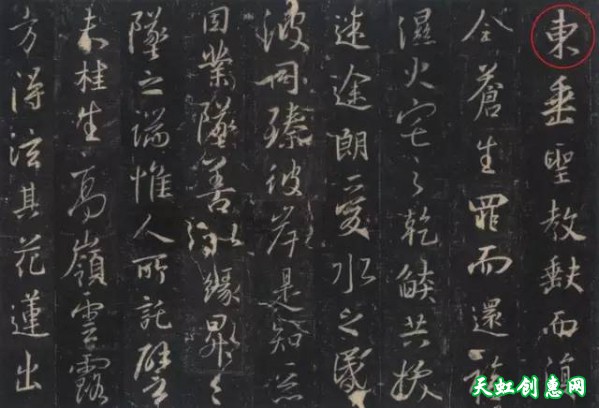 東垂聖教缺而復
全蒼生罪而還福
濕火宅之乾燄共拔
迷途朗愛水之昏
波同臻彼岸是知惡
因業墜善以緣昇々
墜之端惟人所託譬
夫桂生高嶺雲露
方得泫其花蓮出
天虹创惠网